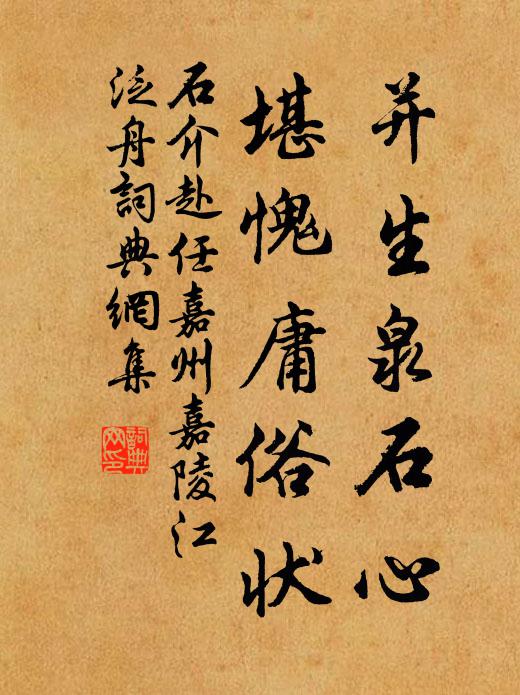 并生泉石心
堪愧庸俗状
石介赴任嘉州嘉陵江
泛舟詞典網集
詞典
网印